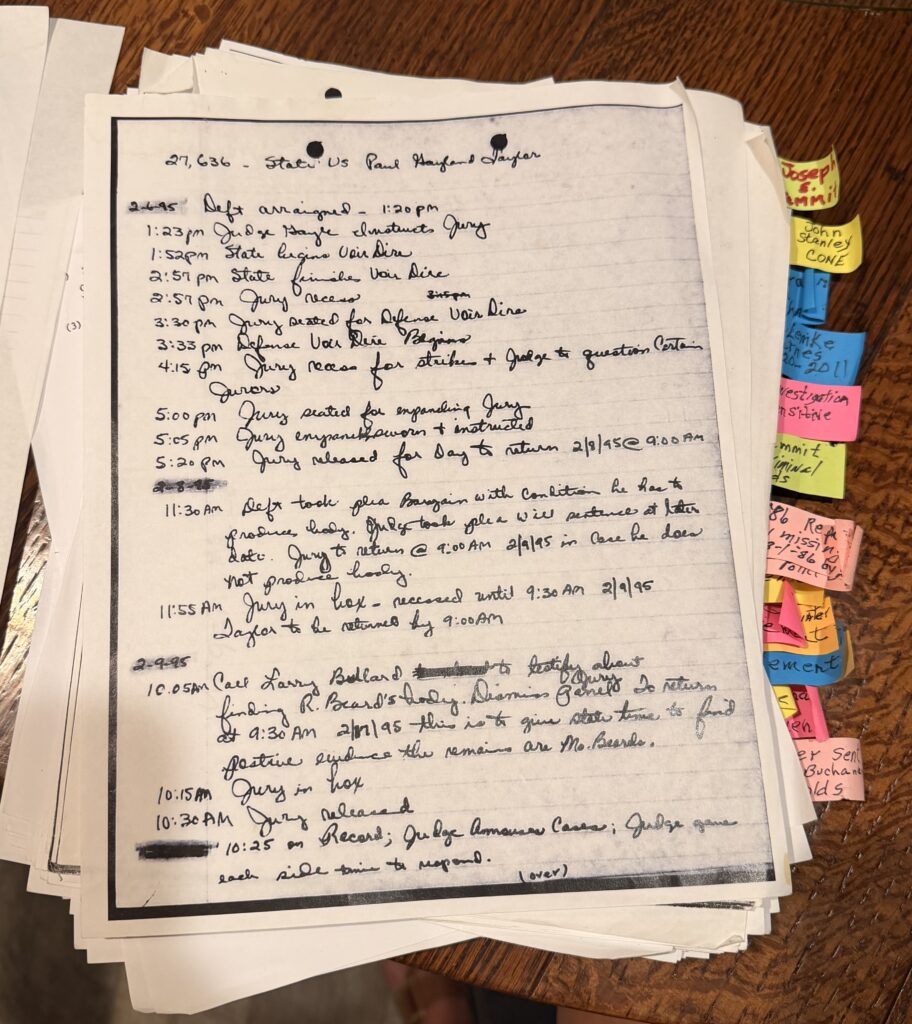 27,636 - State Vs Paul Hayland Taylor
2-6-95 Deft arraigned - 1:20 pm
1:23 pm Judge instructs Jury
1:52 pm State begins Voir Dire
2:57 pm State finishes Voir Dire
2:57 pm Jury recess 3:15 pm
3:30 pm Jury seated for Defense Voir Dire
3:33 pm Defense Voir Dire Begins
4:15 pm Jury recess for strikes + Judge to question Certain
Jurors
5:00 pm Jury seated for empaneling Jury
5:05 pm Jury sworn + instructed
5:20 pm Jury released for Day to return 2/8/95 @ 9:00 AM
2-8-95
11:30 AM Deft took plea Bargain with Condition he has to
produce body. Judge took plea will sentence at later
date. Jury to return @ 9:00 AM 2/9/95 in case he does
not produce body.
11:55 AM Jury in box - recessed until 9:30 AM 2/9/95
Taylor to be returned by 9:00 AM
2-9-95
10:05 AM Call Larry Bullard to testify about
finding R. Beard's body. Dismiss Jury Panel To return
at 9:30 AM this is to give state time to find
positive evidence the remains are Ms. Beards.
10:15 AM Jury in box
10:30 AM Jury released
10:25 on Record; Judge Cases; Judge gave
each side time to respond.
(over)
(3)
Joseph
E.
John
Stanley
CONE
2011
86
missing
9-1-86 by
ement
Buchana